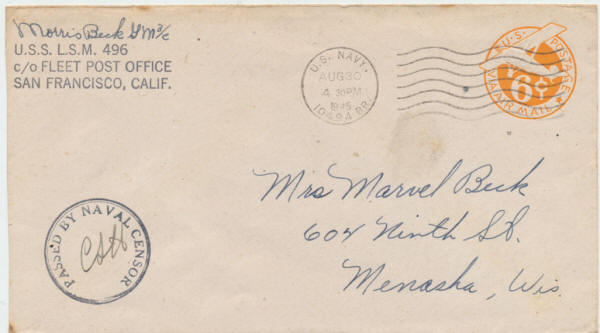 Morris Beck GM3/c
U.S.S. L.S.M. 496
c/o FLEET POST OFFICE
SAN FRANCISCO, CALIF.
U.S. NAVY.
AUG 30
4 30 PM
1945
10494 BR.
U.S. POSTAGE
6¢
VIA AIR MAIL
Mrs Marvel Beck
604 Ninth St.
Menasha, Wis.
PASSED BY NAVAL CENSOR